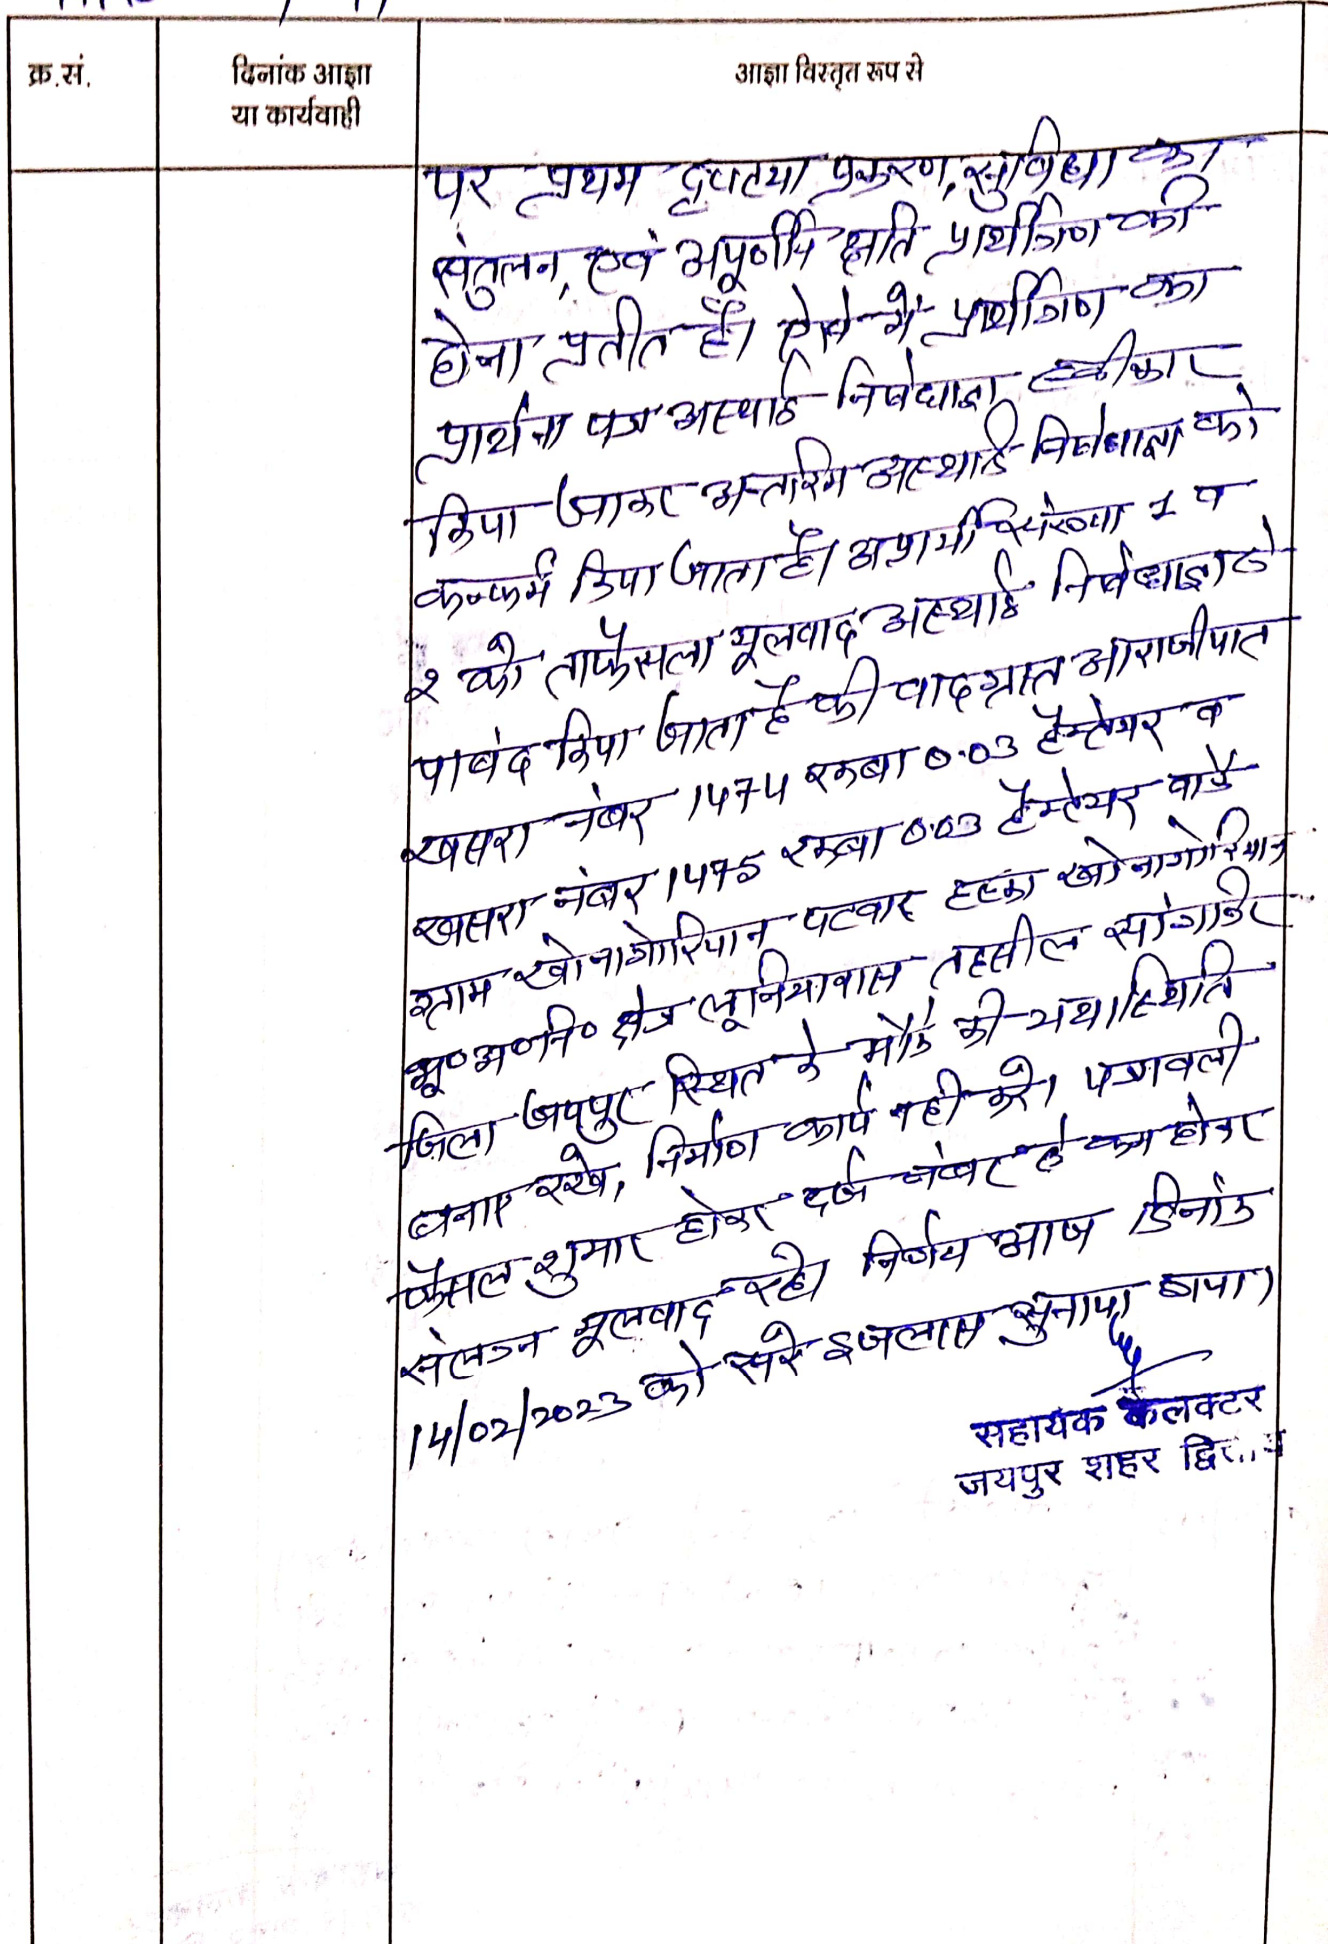 क्र.सं.
दिनांक आज्ञा
या कार्यवाही
आज्ञा विस्तृत रूप से
पर प्रथम दृष्टया प्रकरण, सुविधा का
संतुलन, एवं अपूर्णीय क्षति प्रार्थीगण की
होना प्रतीत है। ऐसे में प्रार्थीगण का
प्रार्थना पत्र अस्थाई निषेधाज्ञा स्वीकार
किया जाकर अन्तरिम अस्थाई निषेधाज्ञा को
कन्फर्म किया जाता है। अप्रार्थी संख्या 1 व
2 को ताफैसला मूलवाद अस्थाई निषेधाज्ञा से
पाबंद किया जाता है की वादग्रस्त आराजीयात
खसरा नंबर 1474 रकबा 0.03 हैक्टेयर व
खसरा नंबर 1475 रकबा 0.03 हैक्टेयर वाके
ग्राम खोनागोरियान पटवार हल्का खोनागोरियान
भू०अ०नि० क्षेत्र लूनियावास तहसील सांगानेर
जिला जयपुर स्थित के मौके की यथास्थिति
बनाए रखे, निर्माण कार्य नही करे। पत्रावली
फैसल शुमार होकर दर्ज नम्बर से कम होकर
संलग्न मूलवाद रहे। निर्णय आज दिनांक
14/02/2023 को सरे इजलास सुनाया गया।
सहायक कलक्टर
जयपुर शहर